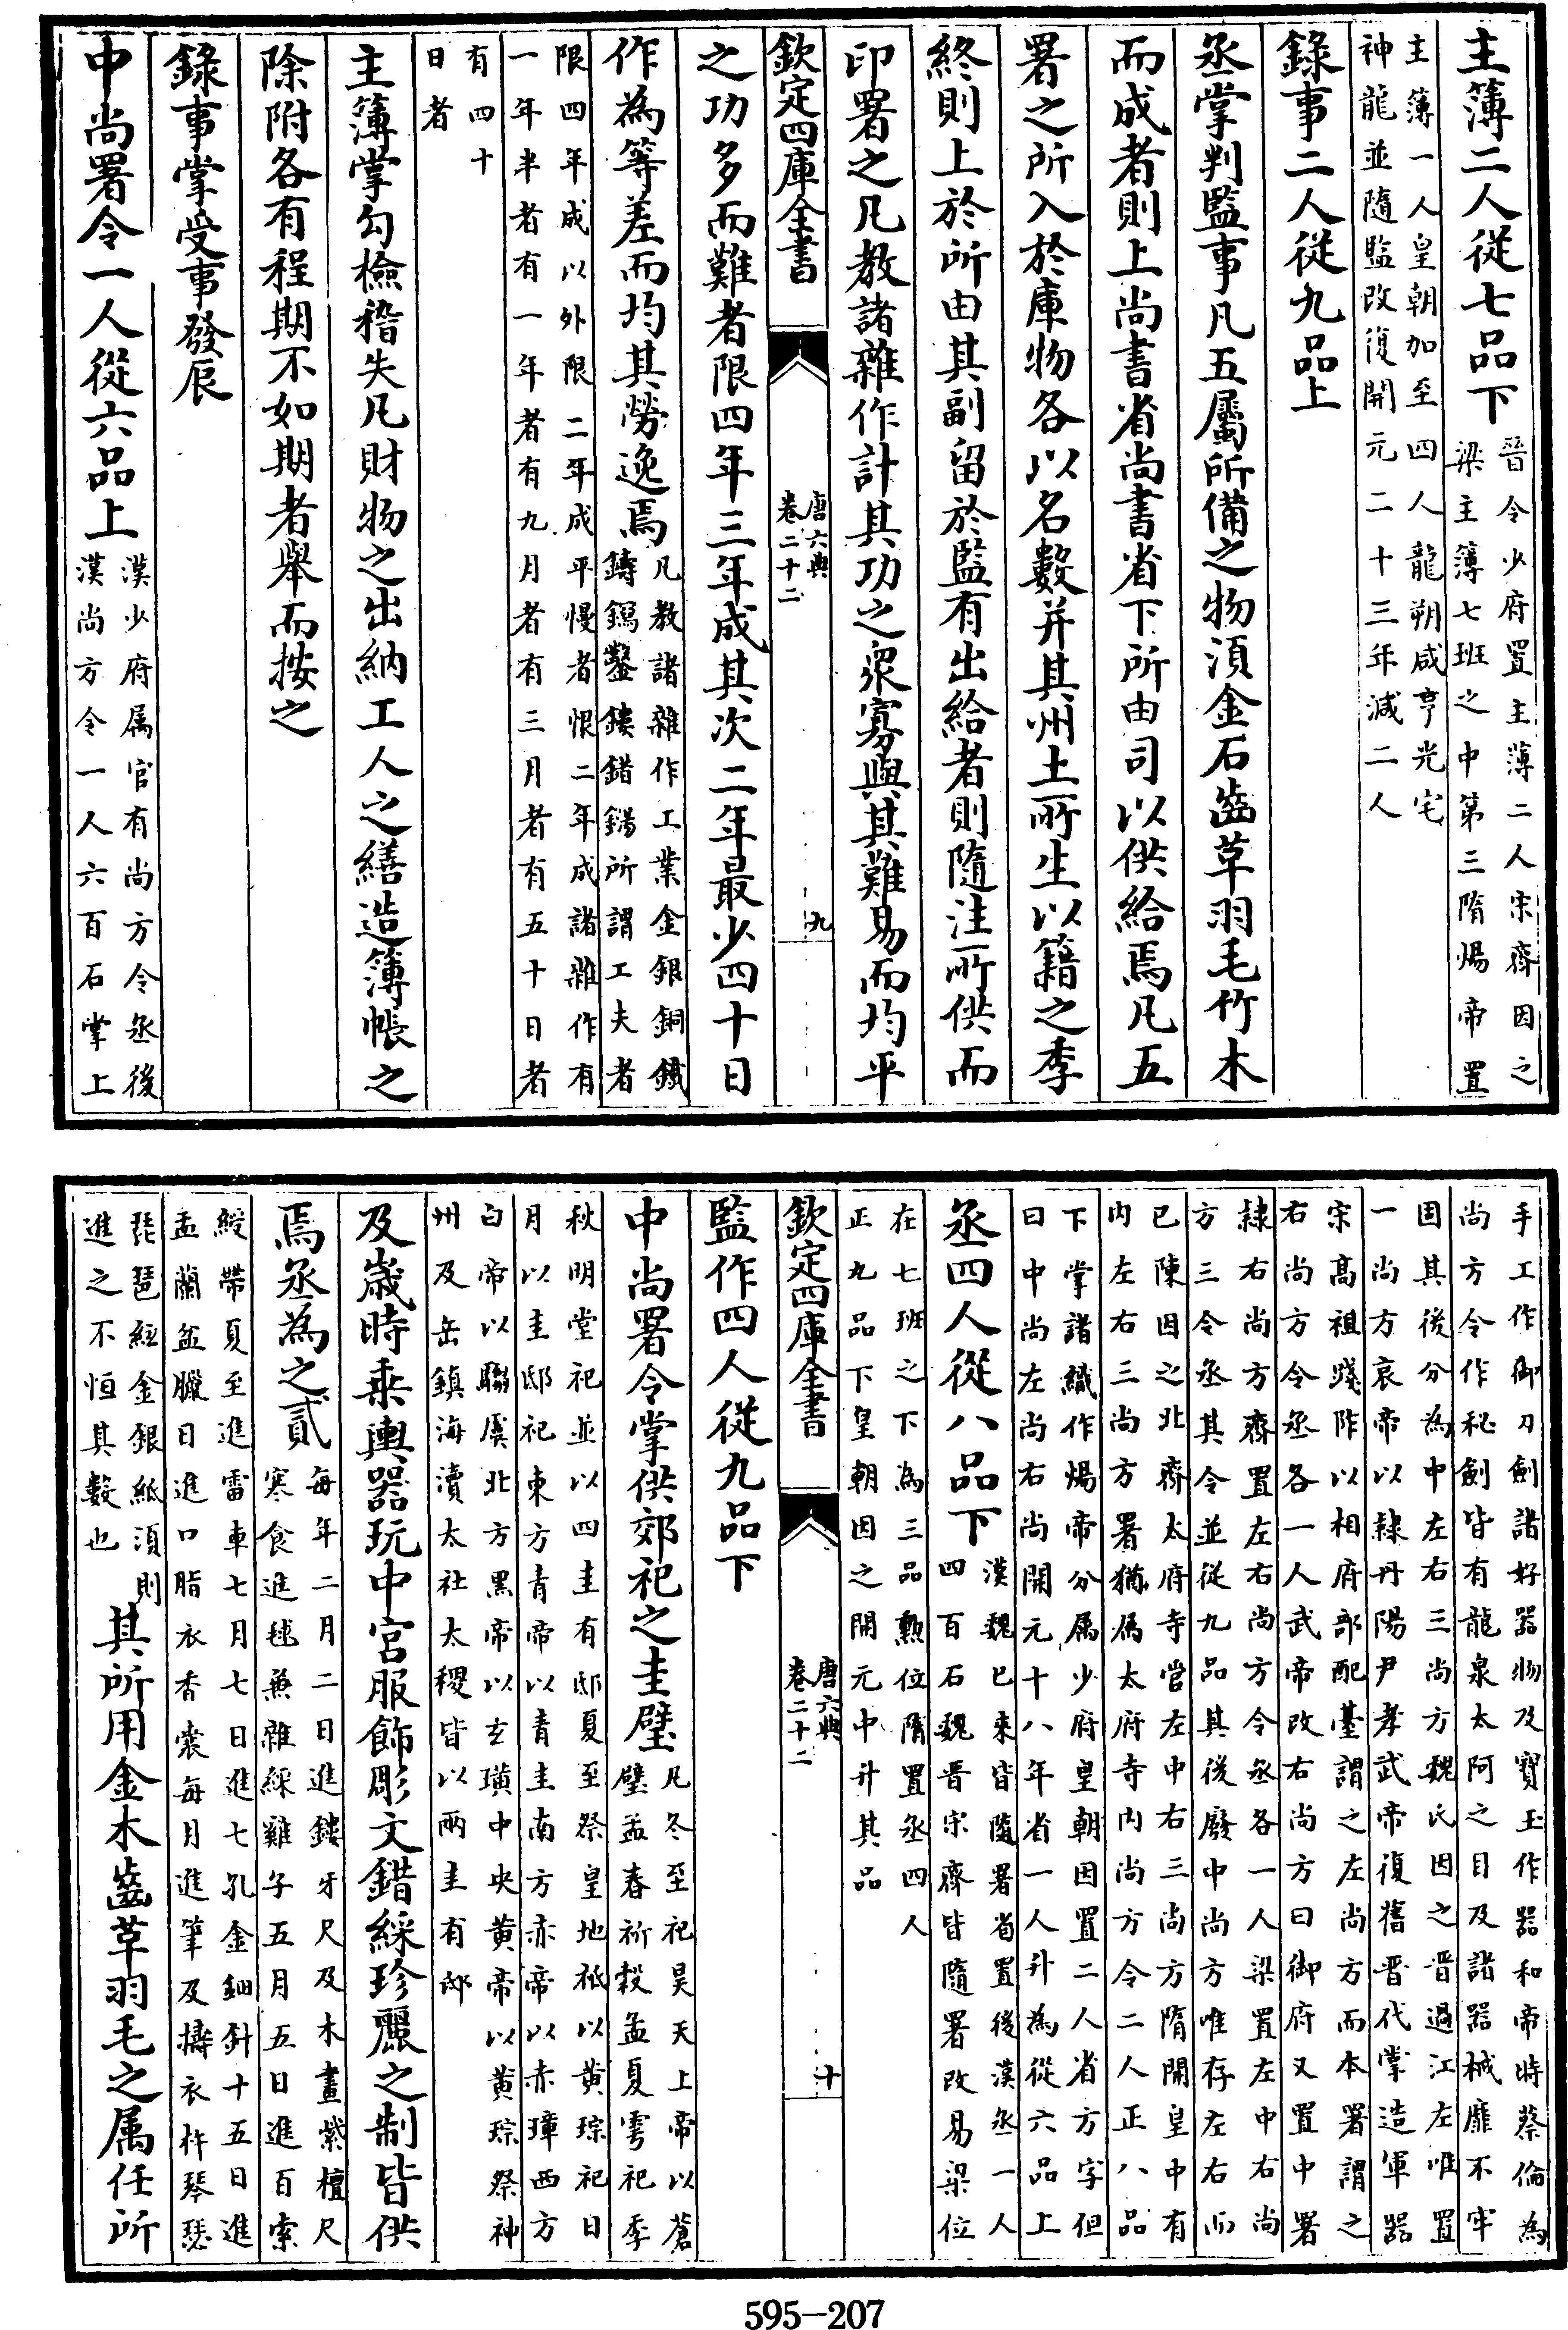 主簿二人從七品下晉令少府置主薄二人宋齊因之梁主簿七班之中第三隋煬帝置
主薄一人皇朝加至四人龍朔咸亨光宅
神龍並隨監改復開元二十三年減二人
錄事二人從九品上
丞掌判監事凡五屬所備之物湏金石齒草羽毛竹木
而成者則上尚書省尚書省下所由司以供給焉凡五
署之所入於庫物各以名數并其州土所生以籍之季
終則上於所由其副留於監有出給者則隨注所供而
印署之凡教諸雜作計其功之衆寡與其難易而均平
欽定四庫全書
唐六典
卷二十二
九
之功多而難者限四年三年成其次二年最少四十日
作為等差而均其勞逸焉凡教諸雜作工業金銀銅鐵鑄鎢鑿鏤錯鍚所謂工夫者
限四年成以外限二年成平慢者恨二年成諸雜作有
一年半者有一年者有九月者有三月者有五十日者
有四十
日者
主簿掌勾檢稽失凡財物之出納工人之繕造簿帳之
除附各有程期不如期者舉而按之
錄事掌受事發辰
中尚署令一人從六品上漢少府属官有尚方令丞後漢尚方令一人六百石掌上
手工作御刀劍諸好器物及寶玉作器和帝時蔡倫為
尚方令作秘劍皆有龍泉太阿之目及諸器械靡不牢
固其後分為中左右三尚方魏氏因之晋過江左唯置
一尚方哀帝以隸丹陽尹孝武帝復舊晋代掌造軍器
宋髙祖踐阼以相府部配臺謂之左尚方而本署謂之
右尚方令丞各一人武帝改右尚方曰御府又置中署
隸右尚方齊置左右尚方令丞各一人梁置左中右尚
方三令丞其令並從九品其後廢中尚方唯存左右而
已陳因之北齊太府寺當左中右三尚方隋開皇中有
内左右三尚方署猶属太府寺内尚方令二人正八品
下掌諸織作煬帝分属少府皇朝因置二人省方字但
曰中尚左尚右尚開元十八年省一人升為從六品上
丞四人從八品下漢魏已來皆隨署省置後漢丞一人四百石魏晋宋齊皆隨署改易梁位
在七班之下為三品勲位隋置丞四人
正九品下皇朝因之開元中升其品
欽定四庫全書
唐六典
卷二十二
十
監作四人從九品下
中尚署令掌供郊祀之圭璧凡冬至祀昊天上帝以蒼璧孟春祈榖孟夏雩祀季
秋明堂祀並以四圭有邸夏至祭皇地祇以黄琮祀日
月以圭邸祀東方青帝以青圭南方赤帝以赤璋西方
白帝以騶虞北方黑帝以玄璜中央黄帝以黄琮祭神
州及岳鎮海瀆太社太稷皆以兩圭有邸
及歲時乘輿器玩中宫服飾彫文錯綵珍麗之制皆供
焉丞為之貳每年二月二日進鏤牙尺及木畫紫檀尺寒食進毬兼雜綵雞子五月五日進百索
綬帶夏至進雷車七月七日進七孔金鈿針十五日進
盂蘭盆臘日進口脂衣香囊每月進筆及擣衣杵琴瑟
琵琶絃金銀紙湏則
進之不恒其數也
其所用金木齒草羽毛之属任所
595-207